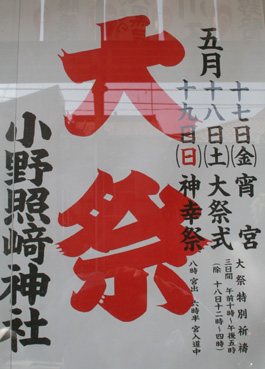 五月
十七日(金) 宵宮
十八日(土) 大祭式
十九日(日) 神幸祭
大祭特別祈祷
三日間 午前十時~午後五時
(除 十八日十二時~四時)
八時 宮出 六時半 宮入道中
大祭
小野照崎神社